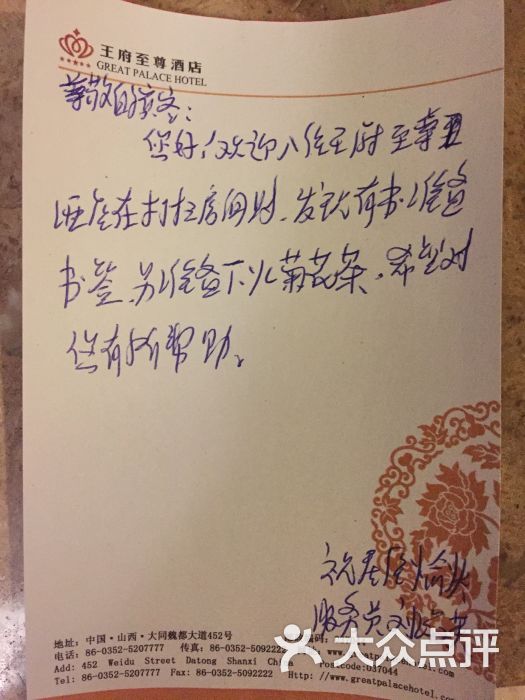 王府至尊酒店
GREAT PALACE HOTEL
尊敬的宾客:
您好!欢迎入住王府至尊
酒店在打扫房间时,发现有书,准备
书签,另准备下火菊花茶,希望对
您有所帮助。
祝居住愉快
服务员
地址:中国·山西·大同魏都大道452号
电话:86-0352-5207777 传真:86-0352-5092222
Add: 452 Weidu Street Datong Shanxi Postcode:037044
Tel: 86-0352-5207777 Fax: 86-0352-5092222 Http://www.greatpalacehotel.com
大众点评